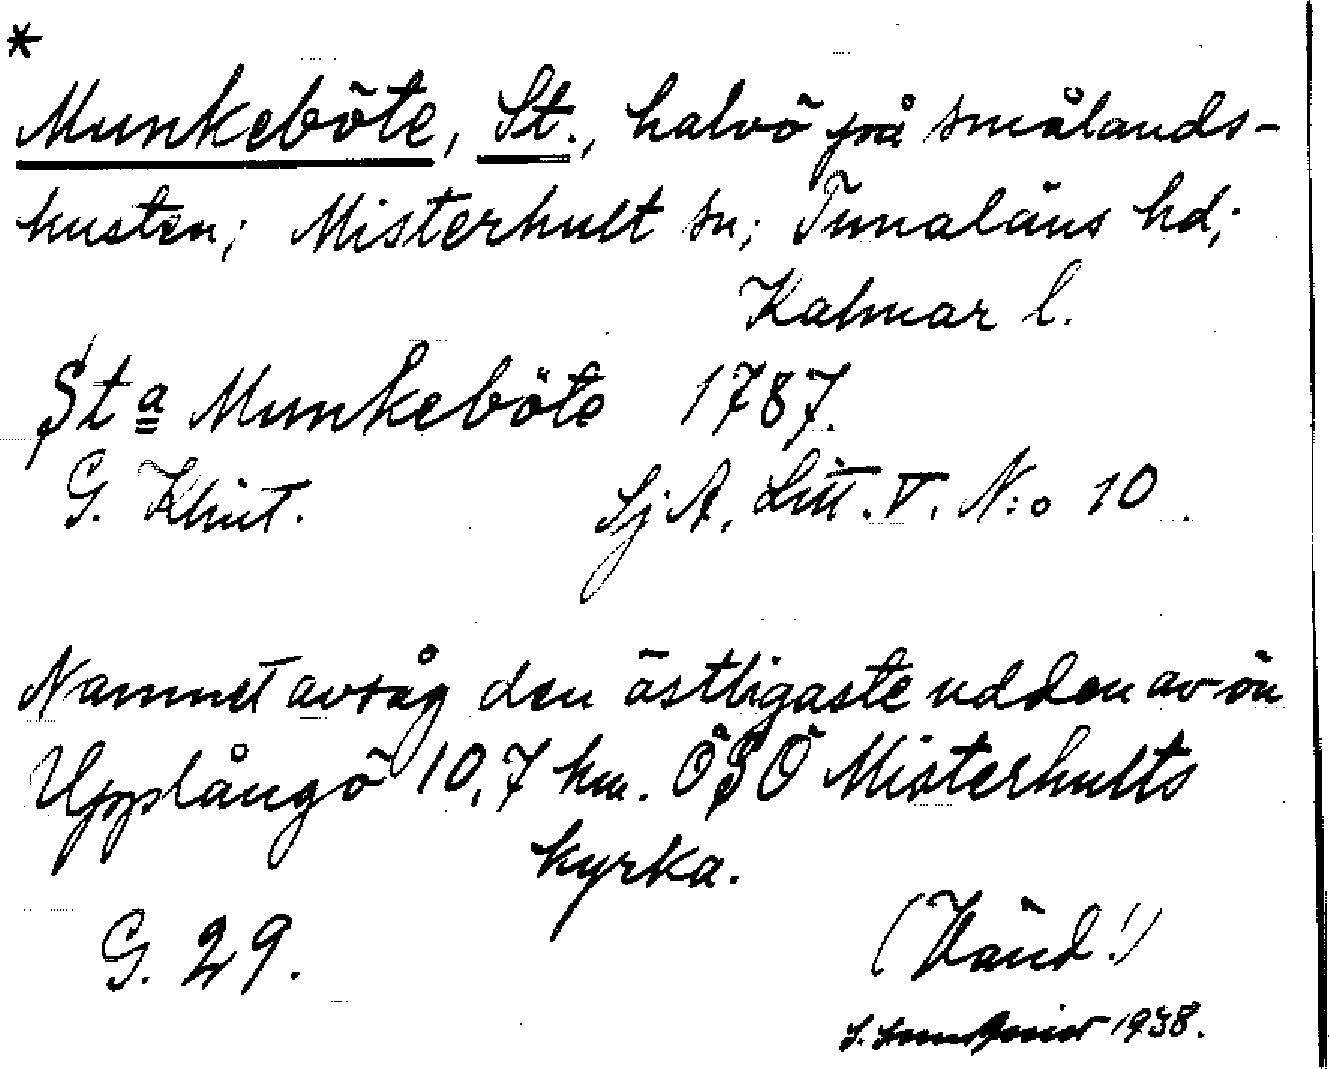 *
Munkeböte, St., halvö på smålands-
kusten; Misterhult sn; Tunaläns hd;
Kalmar l.
Sta Munkeböte 1787.
G. Klint. Sj. A. Litt. V. N:o 10.
Namnet avsåg den östligaste udden av ön
Upplångö 10,7 km. ÖSÖ Misterhults
kyrka.
G. 29. (Vänd!)
1938.